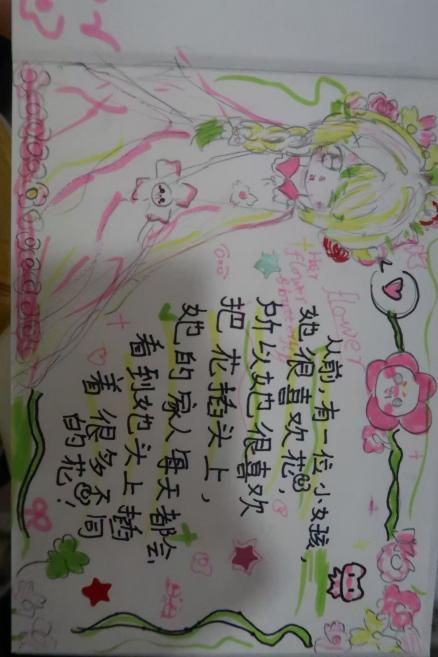 flower
Her
flower
从前,有一位小女孩,
她很喜欢花,
所以她也很喜欢
把花插头上,
她的家人每天都会,
看到她头上插
着很多不同
的花!